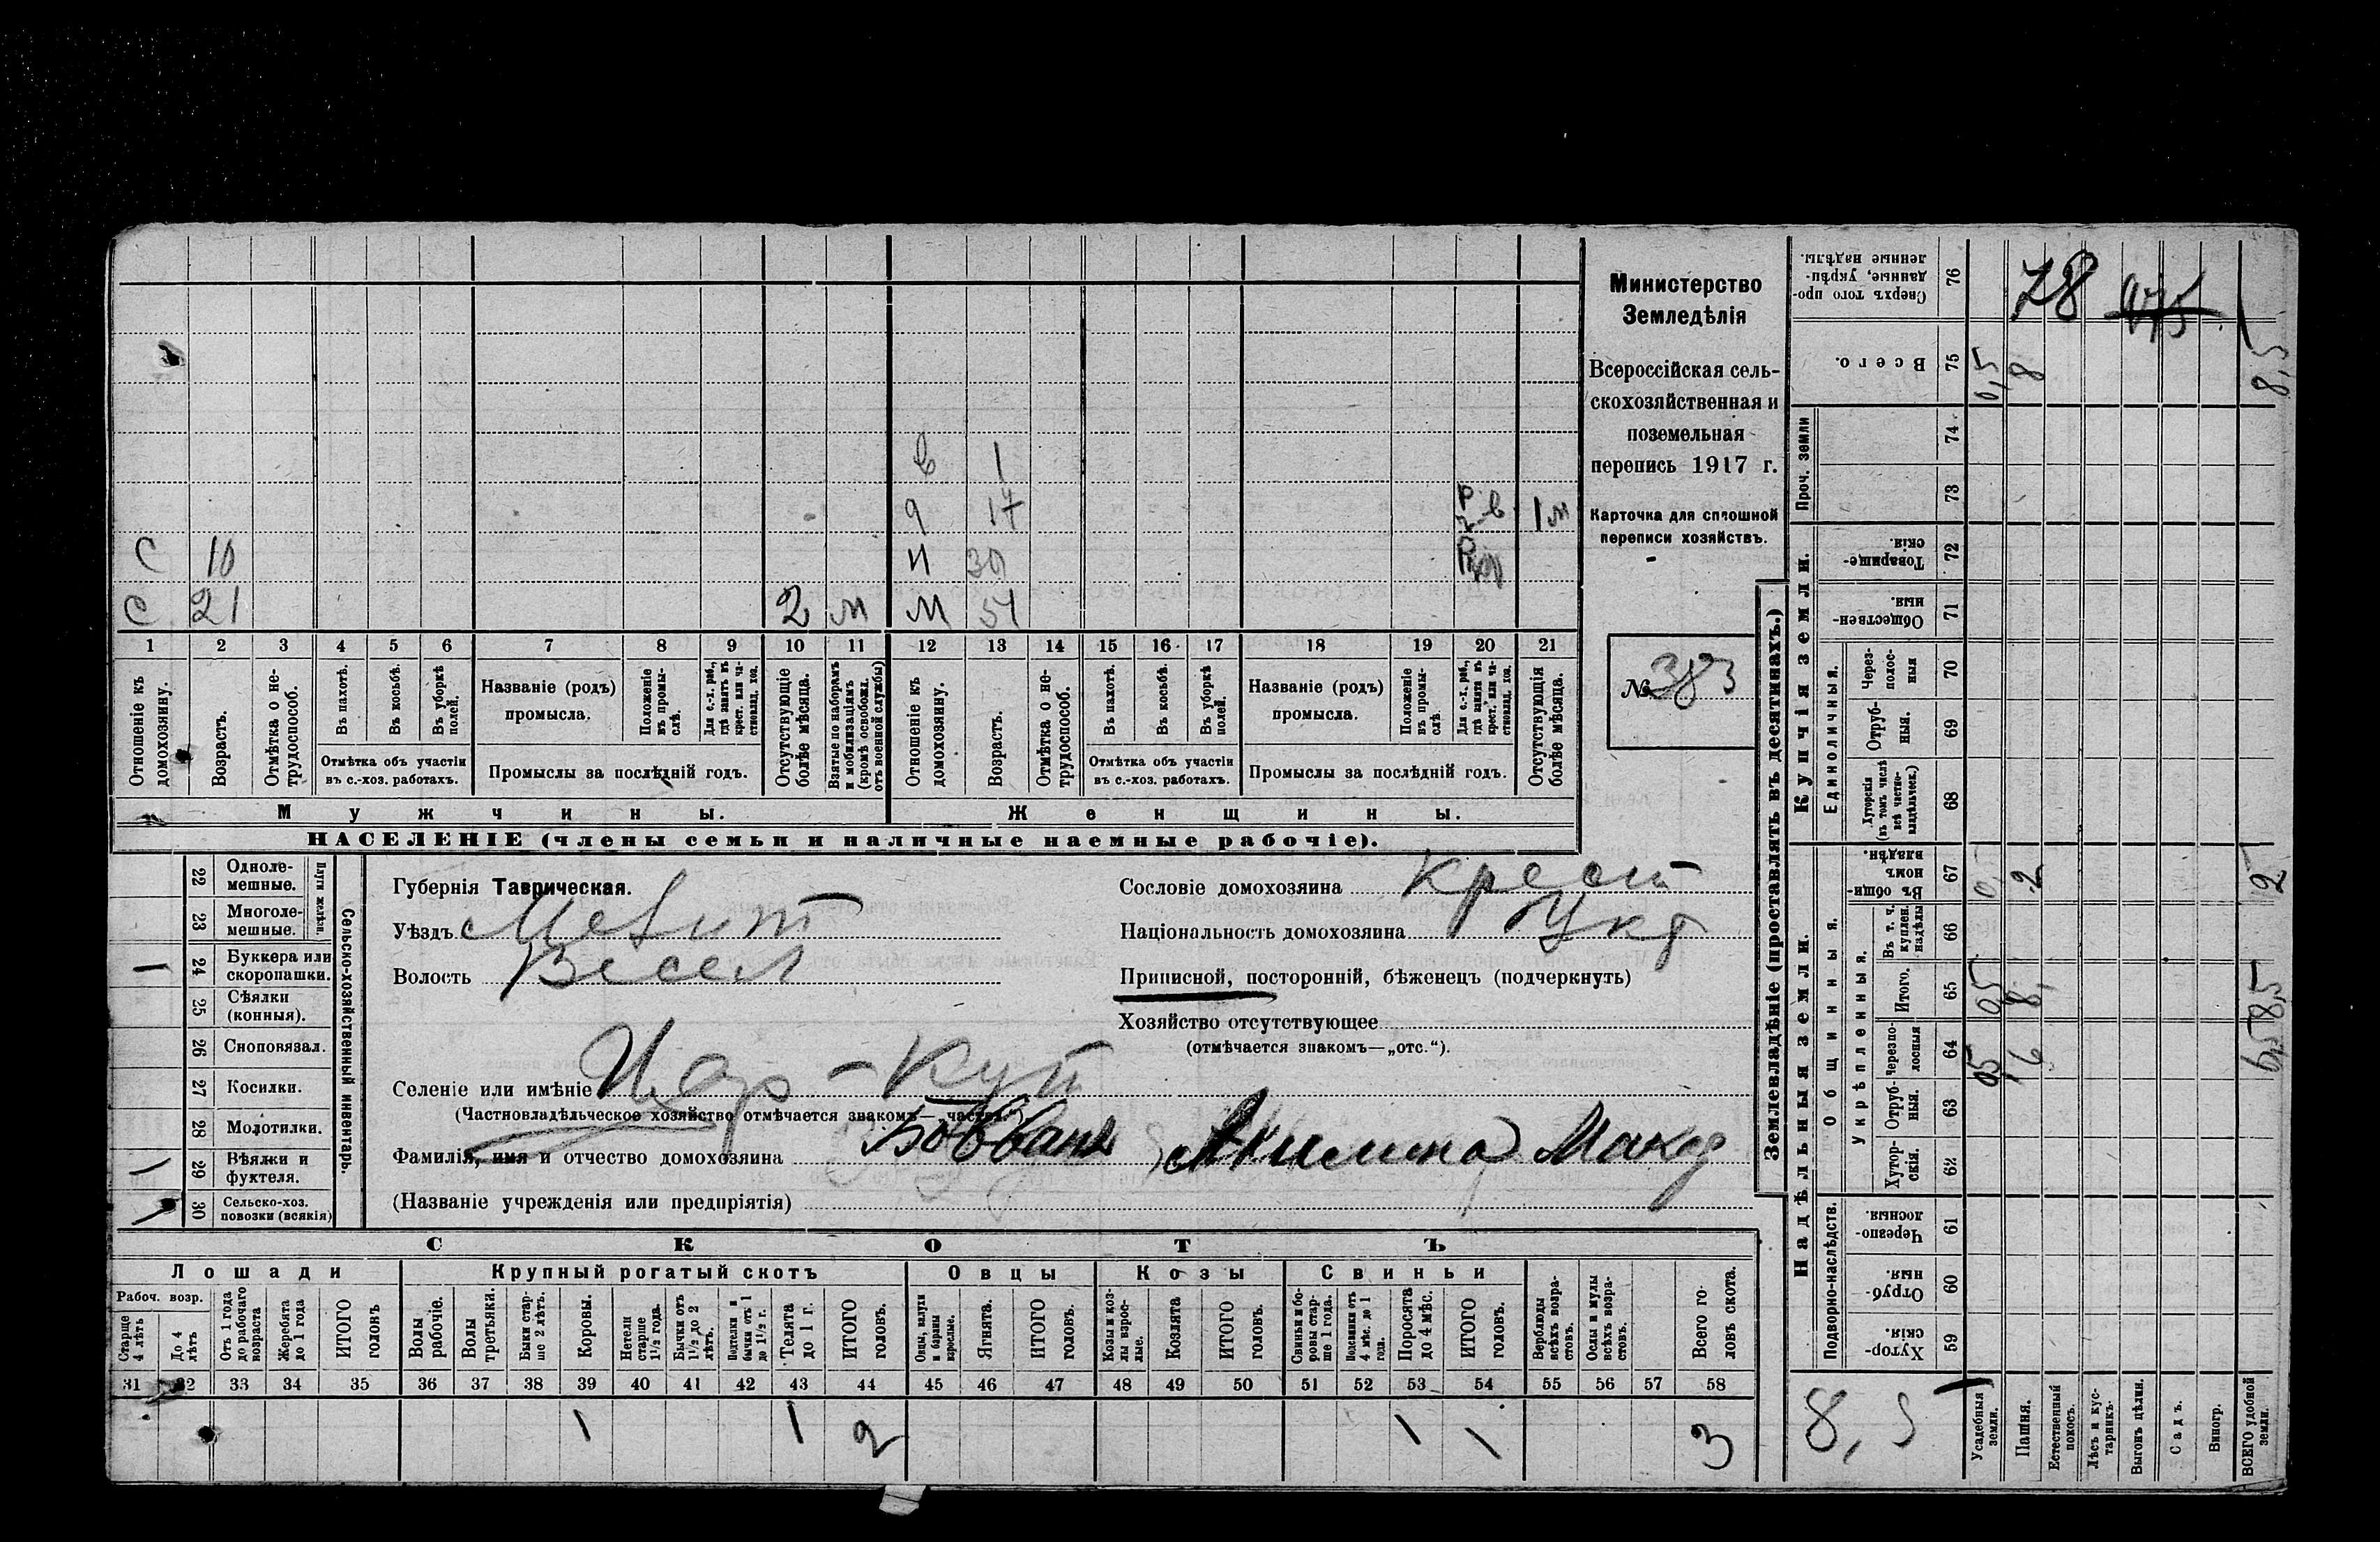 Министерство
Земледѣлія
Всероссійская сель-
скохозяйственная и
поземельная
перепись 1917 г.
Карточка для сплошной
переписи хозяйствъ.
№ 383
в 1
9 17 1 м
С 10 Н
С 21 2 м М 51
1 2 3 4 5 6 7 8 9 10 11 12 13 14 15 16 17 18 19 20 21
Отношеніе къ домохозяину.
Возрастъ.
Отмѣтка о не-трудоспособ.
Въ пахотѣ.
Въ косьбѣ.
Въ уборкѣ полей.
Отмѣтка объ участіи
въ с.-хоз. работахъ.
Названіе (родъ)
промысла.
Положеніе въ промы-слѣ.
Для с.-х. раб., гдѣ занятъ въ крест. или ча-стновлад. хоз.
Промыслы за послѣдній годъ.
Отсутствующіе болѣе мѣсяца.
Взятые по наборамъ и мобилизаціямъ (кромѣ освобожд. отъ военной службы)
Отношеніе къ домохозяину.
Возрастъ.
Отмѣтка о не-трудоспособ.
Въ пахотѣ.
Въ косьбѣ.
Въ уборкѣ полей.
Отмѣтка объ участіи
въ с.-хоз. работахъ.
Названіе (родъ)
промысла.
Положеніе въ промы-слѣ.
Для с.-х. раб., гдѣ занята въ крест. или ча-стновлад. хоз.
Промыслы за послѣдній годъ.
Отсутствующія болѣе мѣсяца.
Мужчины.
Женщины.
НАСЕЛЕНІЕ (члены семьи и наличные наемные рабочіе).
22 Одноле-мешные.
23 Многоле-мешные.
Плуги желѣзн.
24 Буккера или скоропашки.
25 Сѣялки (конныя).
26 Сноповязал.
27 Косилки.
28 Молотилки.
29 Вѣялки и фухтеля.
30 Сельско-хоз. повозки (всякія)
Сельско-хозяйственный инвентарь.
Губернія Таврическая.
Уѣздъ Мелит
Волость Весел
Селеніе или имѣніе Цар-Кут
(Частновладѣльческое хозяйство отмѣчается знакомъ—„частн.“)
Фамилія, имя и отчество домохозяина Акилина Макар
(Названіе учрежденія или предпріятія)
Сословіе домохозяина крест
Національность домохозяина Укр
Приписной, посторонній, бѣженецъ (подчеркнуть)
Хозяйство отсутствующее
(отмѣчается знакомъ—„отс.“).
СКОТЪ
Лошади
Крупный рогатый скотъ
Овцы
Козы
Свиньи
Рабоч. возр.
Старше 4 лѣтъ
До 4 лѣтъ
Отъ 1 года до рабочаго возраста
Жеребята до 1 года
ИТОГО головъ
Волы рабочіе.
Волы третьяки.
Быки стар-ше 2 лѣтъ.
Коровы.
Нетели старше 1½ года.
Бычки отъ 1½ до 2 лѣтъ.
Подтелки и бычки отъ 1 до 1½ г.
Телята до 1 г.
ИТОГО головъ.
Овцы, валухи и бараны взрослые.
Ягнята.
ИТОГО головъ.
Козы и коз-лы взрос-лые.
Козлята
ИТОГО головъ.
Свиньи и бо-ровы стар-ше 1 года.
Подсвинки отъ 4 мѣс. до 1 года.
Поросята до 4 мѣс.
ИТОГО головъ.
Верблюды всѣхъ возра-стовъ.
Ослы и мулы всѣхъ возра-стовъ.
Всего го-ловъ скота.
31 32 33 34 35 36 37 38 39 40 41 42 43 44 45 46 47 48 49 50 51 52 53 54 55 56 57 58
1 1 2 1 1 3
Землевладѣніе (проставлять въ десятинахъ.)
Надѣльныя земли.
Купчія земли.
Проч. земли
Подворно-наслѣдств.
Общинныя.
Укрѣпленныя.
Единоличныя.
Сверхъ того про-данные, укрѣп-ленные надѣлы. 76 78
Всего. 75 0,5 8 8,5
74
73
Товарище-скія. 72
Обществен-ныя. 71
Через-полос-ныя 70
Отруб-ныя. 69
Хуторскія (въ томъ числѣ всѣ частно-владѣльческ.) 68
Въ общин-номъ владѣн. 67 2 2
Въ т. ч. куплен. надѣлы 66
Итого. 65 0,5 8
Черезпо-лосныя 64 0,5 6 6,5
Отруб-ныя. 63
Хутор-скія. 62
Черезпо-лосныя. 61
Отруб-ныя. 60
Хутор-скія. 59
8,5
Усадебныя земли.
Пашня.
Естественный покосъ.
Лѣсъ и кус-тарникъ.
Выгонъ цѣлин.
Садъ.
Виногр.
ВСЕГО удобной земли.